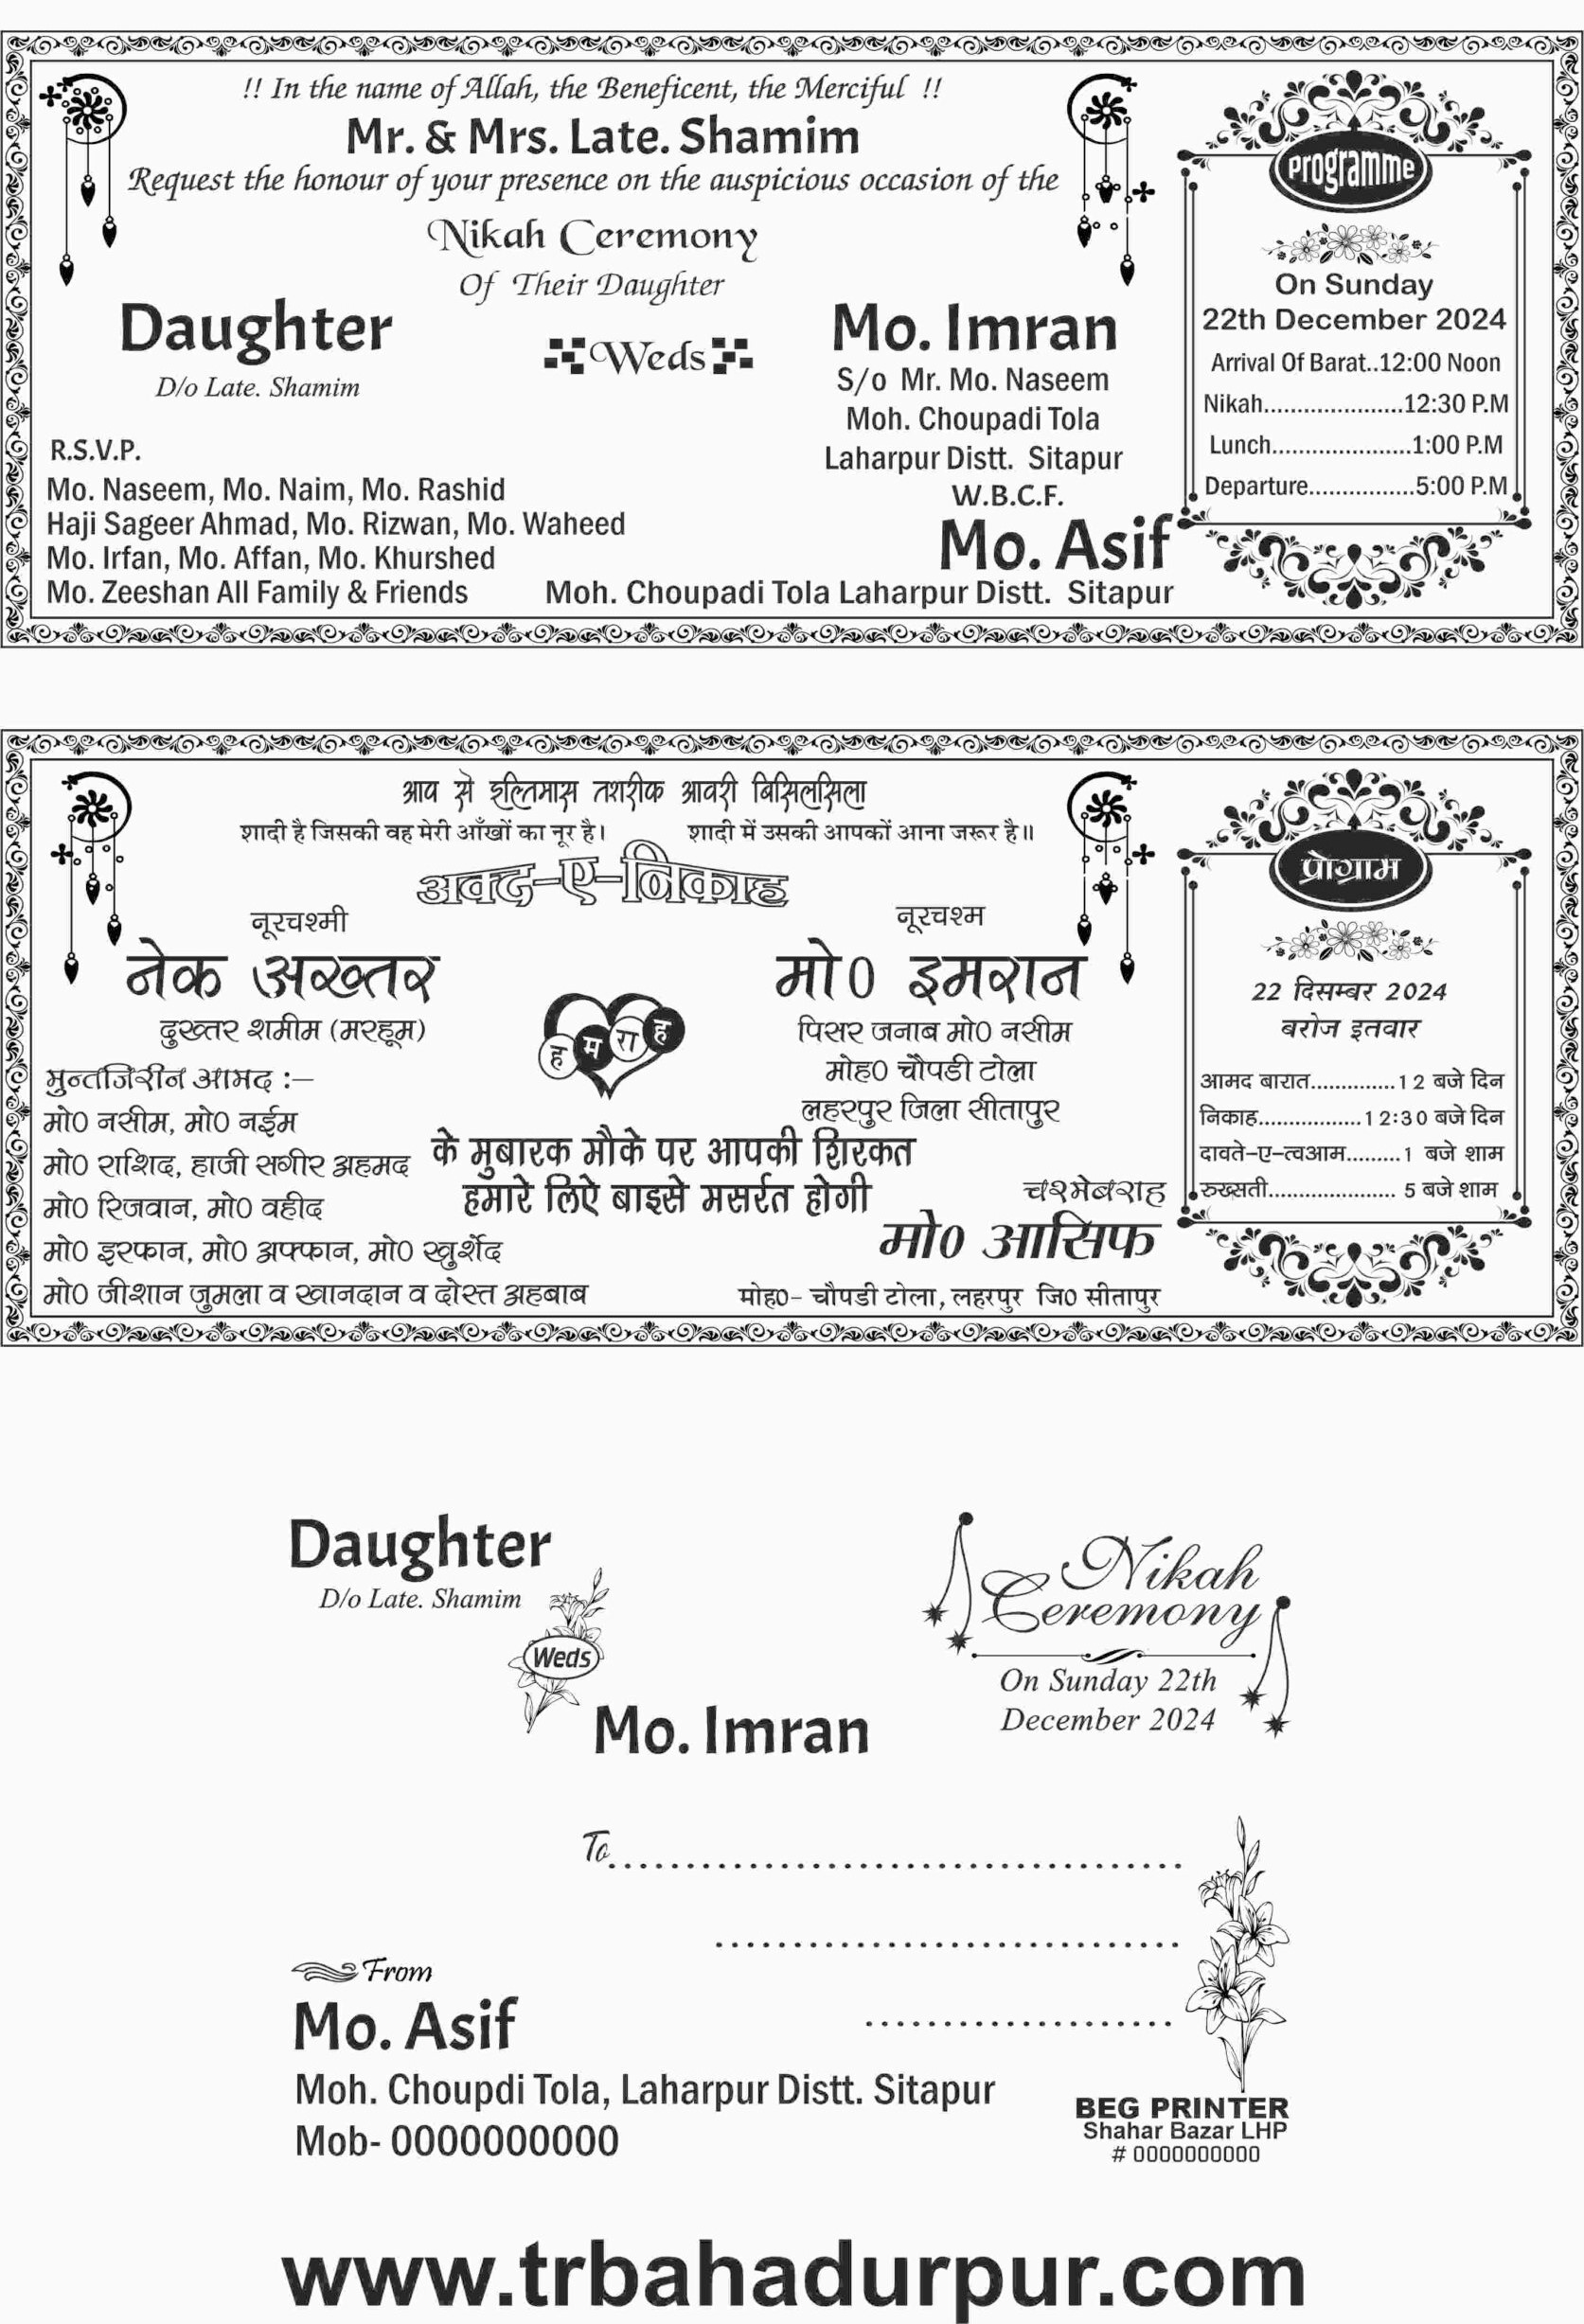 !! In the name of Allah, the Beneficent, the Merciful !!
Mr. & Mrs. Late. Shamim
Request the honour of your presence on the auspicious occasion of the
Nikah Ceremony
Of Their Daughter
Daughter
D/o Late. Shamim
Weds
Mo. Imran
S/o Mr. Mo. Naseem
Moh. Choupadi Tola
Laharpur Distt. Sitapur
R.S.V.P.
Mo. Naseem, Mo. Naim, Mo. Rashid
Haji Sageer Ahmad, Mo. Rizwan, Mo. Waheed
Mo. Irfan, Mo. Affan, Mo. Khurshed
Mo. Zeeshan All Family & Friends
W.B.C.F.
Mo. Asif
Moh. Choupadi Tola Laharpur Distt. Sitapur
Programme
On Sunday
22th December 2024
Arrival Of Barat..12:00 Noon
Nikah.....................12:30 P.M
Lunch.....................1:00 P.M
Departure................5:00 P.M
आप से इल्तिमास तशरीफ आवरी बिसिलसिला
शादी है जिसकी वह मेरी आँखों का नूर है। शादी में उसकी आपकों आना जरूर है॥
अक्द-ए-निकाह
नूरचश्मी
नेक अख्तर
दुख्तर शमीम (मरहूम)
हमराह
नूरचश्म
मो0 इमरान
पिसर जनाब मो0 नसीम
मोह0 चौपडी टोला
लहरपुर जिला सीतापुर
मुन्तजिरीन आमद :–
मो0 नसीम, मो0 नईम
मो0 राशिद, हाजी सगीर अहमद
मो0 रिजवान, मो0 वहीद
मो0 इरफान, मो0 अफ्फान, मो0 खुर्शेद
मो0 जीशान जुमला व खानदान व दोस्त अहबाब
के मुबारक मौके पर आपकी शिरकत
हमारे लिऐ बाइसे मसर्रत होगी
चश्मेबराह
मो0 आसिफ
मोह0- चौपडी टोला, लहरपुर जि0 सीतापुर
प्रोग्राम
22 दिसम्बर 2024
बरोज इतवार
आमद बारात..............12 बजे दिन
निकाह.................12:30 बजे दिन
दावते-ए-त्वआम.........1 बजे शाम
रुख्सती..................... 5 बजे शाम
Daughter
D/o Late. Shamim
Weds
Mo. Imran
Nikah
Ceremony
On Sunday 22th
December 2024
To
From
Mo. Asif
Moh. Choupdi Tola, Laharpur Distt. Sitapur
Mob- 0000000000
BEG PRINTER
Shahar Bazar LHP
# 0000000000
www.trbahadurpur.com